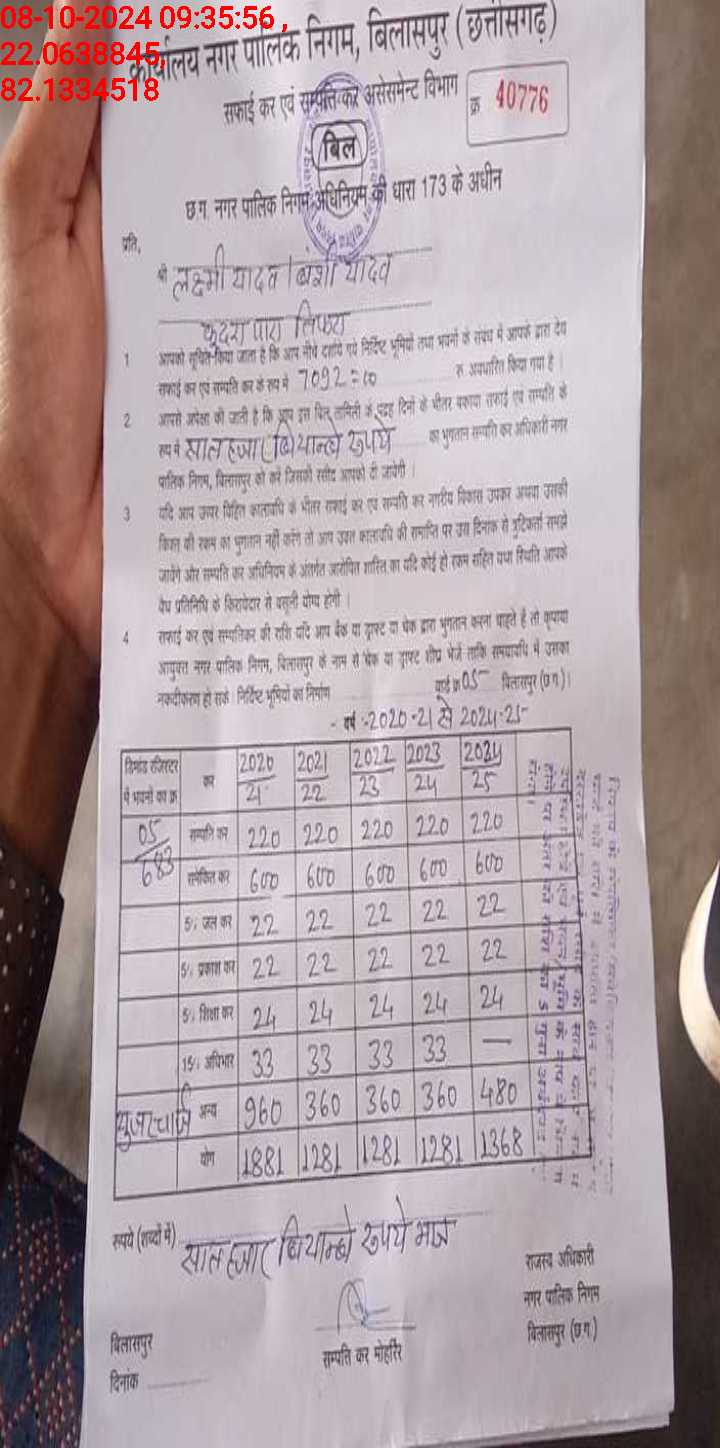 08-10-2024 09:35:56 ,
22.0638845,
82.1334518
कार्यालय नगर पालिक निगम, बिलासपुर (छत्तीसगढ़)
सफाई कर एवं सम्पत्ति कर असेसमेन्ट विभाग
क्र. 40776
बिल
छ.ग. नगर पालिक निगम अधिनियम की धारा 173 के अधीन
प्रति,
श्री लक्ष्मी यादव / बंशी यादव
कुदरा पारा तिफरा
1 आपको सूचित किया जाता है कि आप नीचे दर्शाये गये निर्दिष्ट भूमियों तथा भवनों के संबंध में आपके द्वारा देय
सफाई कर एवं सम्पत्ति कर के रूप में 7092=00 रु. अवधारित किया गया है।
2 आपसे अपेक्षा की जाती है कि आप इस बिल तामिली के पंद्रह दिनों के भीतर बकाया सफाई एवं सम्पत्ति के
रूप में सात हजार बियान्बे रुपये का भुगतान सम्पत्ति कर अधिकारी नगर
पालिक निगम, बिलासपुर को करें जिसकी रसीद आपको दी जायेगी।
3 यदि आप ऊपर विहित कालावधि के भीतर सफाई कर एवं सम्पत्ति कर नगरीय विकास उपकर अथवा उसकी
किश्त की रकम का भुगतान नहीं करेंगे तो आप उक्त कालावधि की समाप्ति पर उस दिनांक से त्रुटिकर्ता समझे
जावेंगे और सम्पत्ति कर अधिनियम के अंतर्गत आरोपित शास्ति का यदि कोई हो रकम सहित यथा स्थिति आपके
वैध प्रतिनिधि के किरायेदार से वसूली योग्य होगी।
4 सफाई कर एवं सम्पत्तिकर की राशि यदि आप बैंक या ड्राफ्ट या चेक द्वारा भुगतान करना चाहते हैं तो कृपया
आयुक्त नगर पालिक निगम, बिलासपुर के नाम से चेक या ड्राफ्ट शीघ्र भेजें ताकि समयावधि में उसका
नकदीकरण हो सके। निर्दिष्ट भूमियों का निर्माण वार्ड क्र. 05 बिलासपुर (छ.ग.)।
- वर्ष -2020-21 से 2024-25
डिमांड रजिस्टर में भवनों का क्र. कर 2020/21 2021/22 2022/23 2023/24 2024/25
05/683 सम्पत्ति कर 220 220 220 220 220
समेकित कर 600 600 600 600 600
5% जल कर 22 22 22 22 22
5% प्रकाश कर 22 22 22 22 22
5% शिक्षा कर 24 24 24 24 24
15% अधिभार 33 33 33 33 —
यूजरचार्ज अन्य 960 360 360 360 480
योग 1881 1281 1281 1281 1368
रूपये (शब्दों में) सात हजार बियान्बे रुपये मात्र
राजस्व अधिकारी
नगर पालिक निगम
बिलासपुर (छ.ग.)
सम्पत्ति कर मोहर्रिर
बिलासपुर
दिनांक